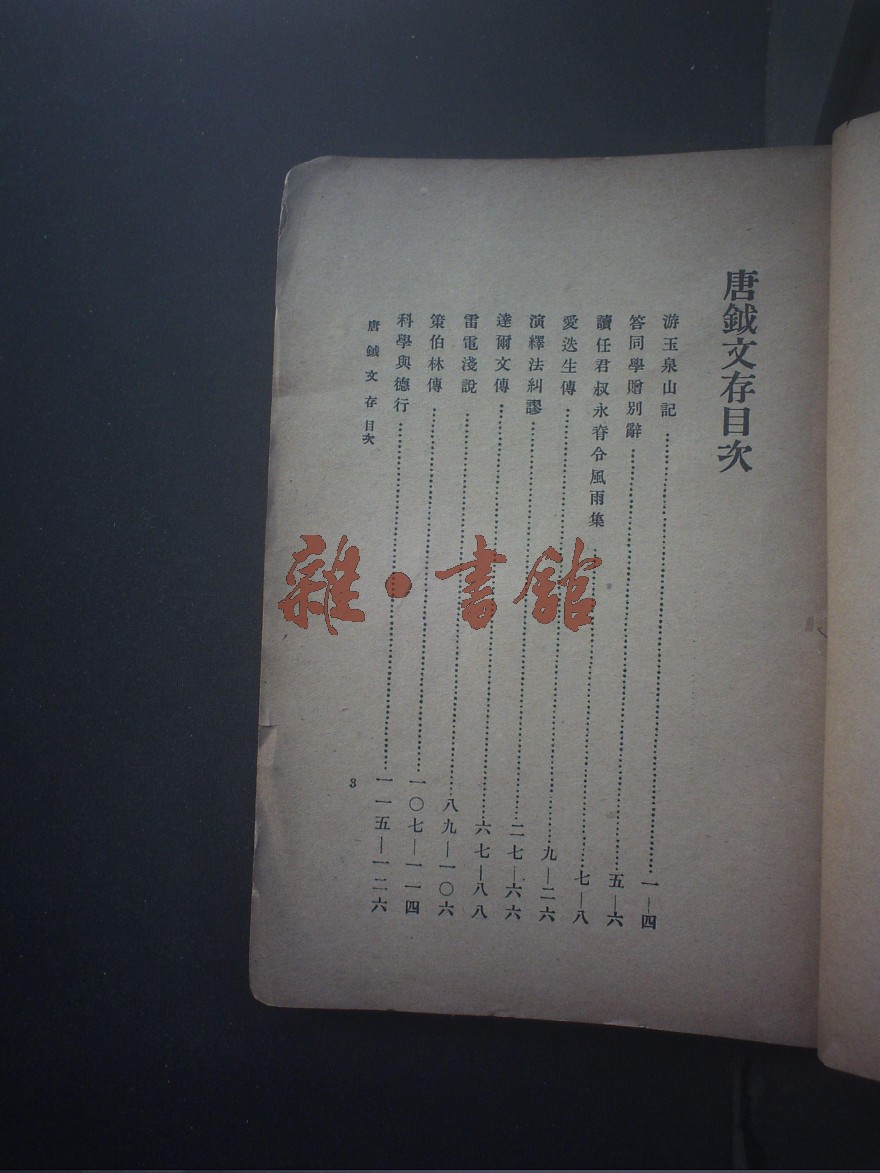 唐鉞文存目次
游玉泉山記……一—四
答同學贈別辭……五—六
讀任君叔永脊令風雨集……七—八
愛迭生傳……九—二六
演釋法糾謬……二七—六六
達爾文傳……六七—八八
雷電淺說……八九—一〇六
策伯林傳……一〇七—一一四
科學與德行……一一五—一二六
唐鉞文存目次
3
雜·書館